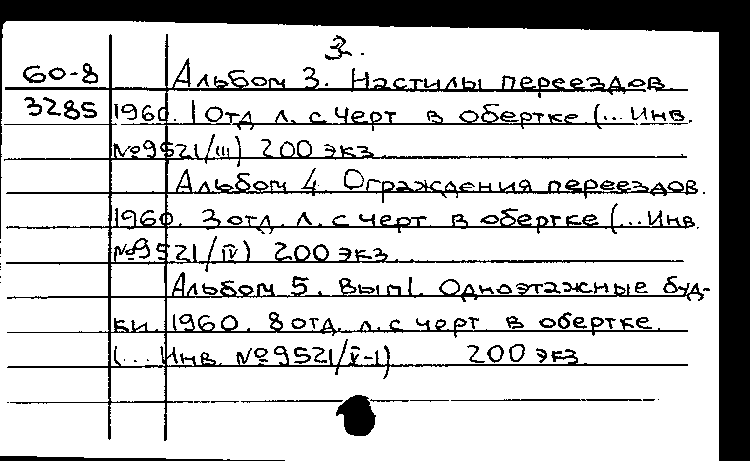 3.
60-8 Альбом 3. Настилы переездов.
3285 1960. 1 отд. л. с черт в обертке (... Инв.
№9521/III) 200 экз
Альбом 4. Ограждения переездов.
1960. 3 отд. л. с черт в обертке (... Инв
№9521/IV) 200 экз.
Альбом 5. Вып1. Одноэтажные буд-
ки. 1960. 8 отд. л. с черт в обертке.
(... Инв. №9521/V-1) 200 экз.